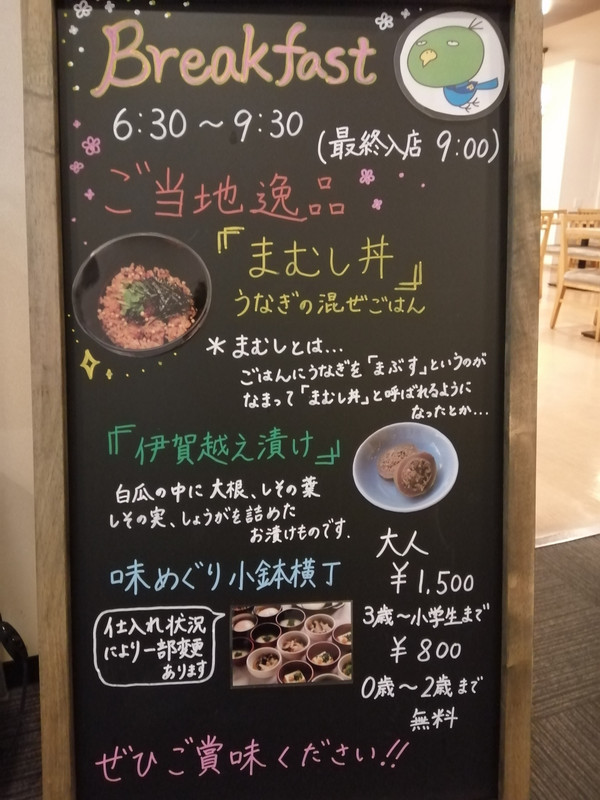 Breakfast
6:30～9:30
(最終入店 9:00)
ご当地逸品
『まむし丼』
うなぎの混ぜごはん
＊まむしとは…
ごはんにうなぎを「まぶす」というのが
なまって「まむし丼」と呼ばれるように
なったとか…
『伊賀越え漬け』
白瓜の中に大根、しその葉
しその実、しょうがを詰めた
お漬けものです.
味めぐり小鉢横丁
仕入れ状況
により一部変更
あります
大人
￥1,500
3歳～小学生まで
￥800
0歳～2歳まで
無料
ぜひご賞味ください!!